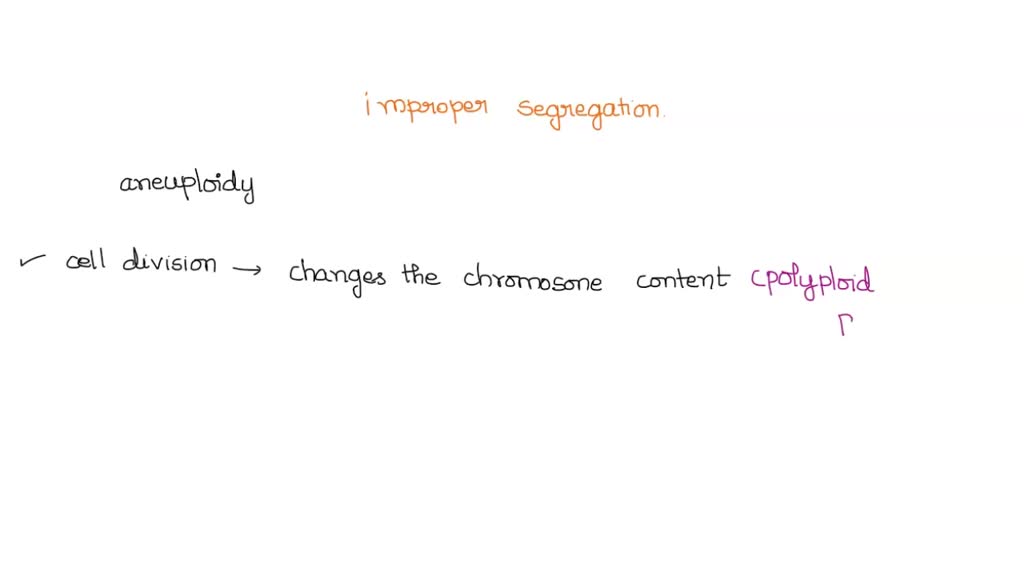 improper segregation.
aneuploidy
✓ cell division → changes the chromosone content (polyploid